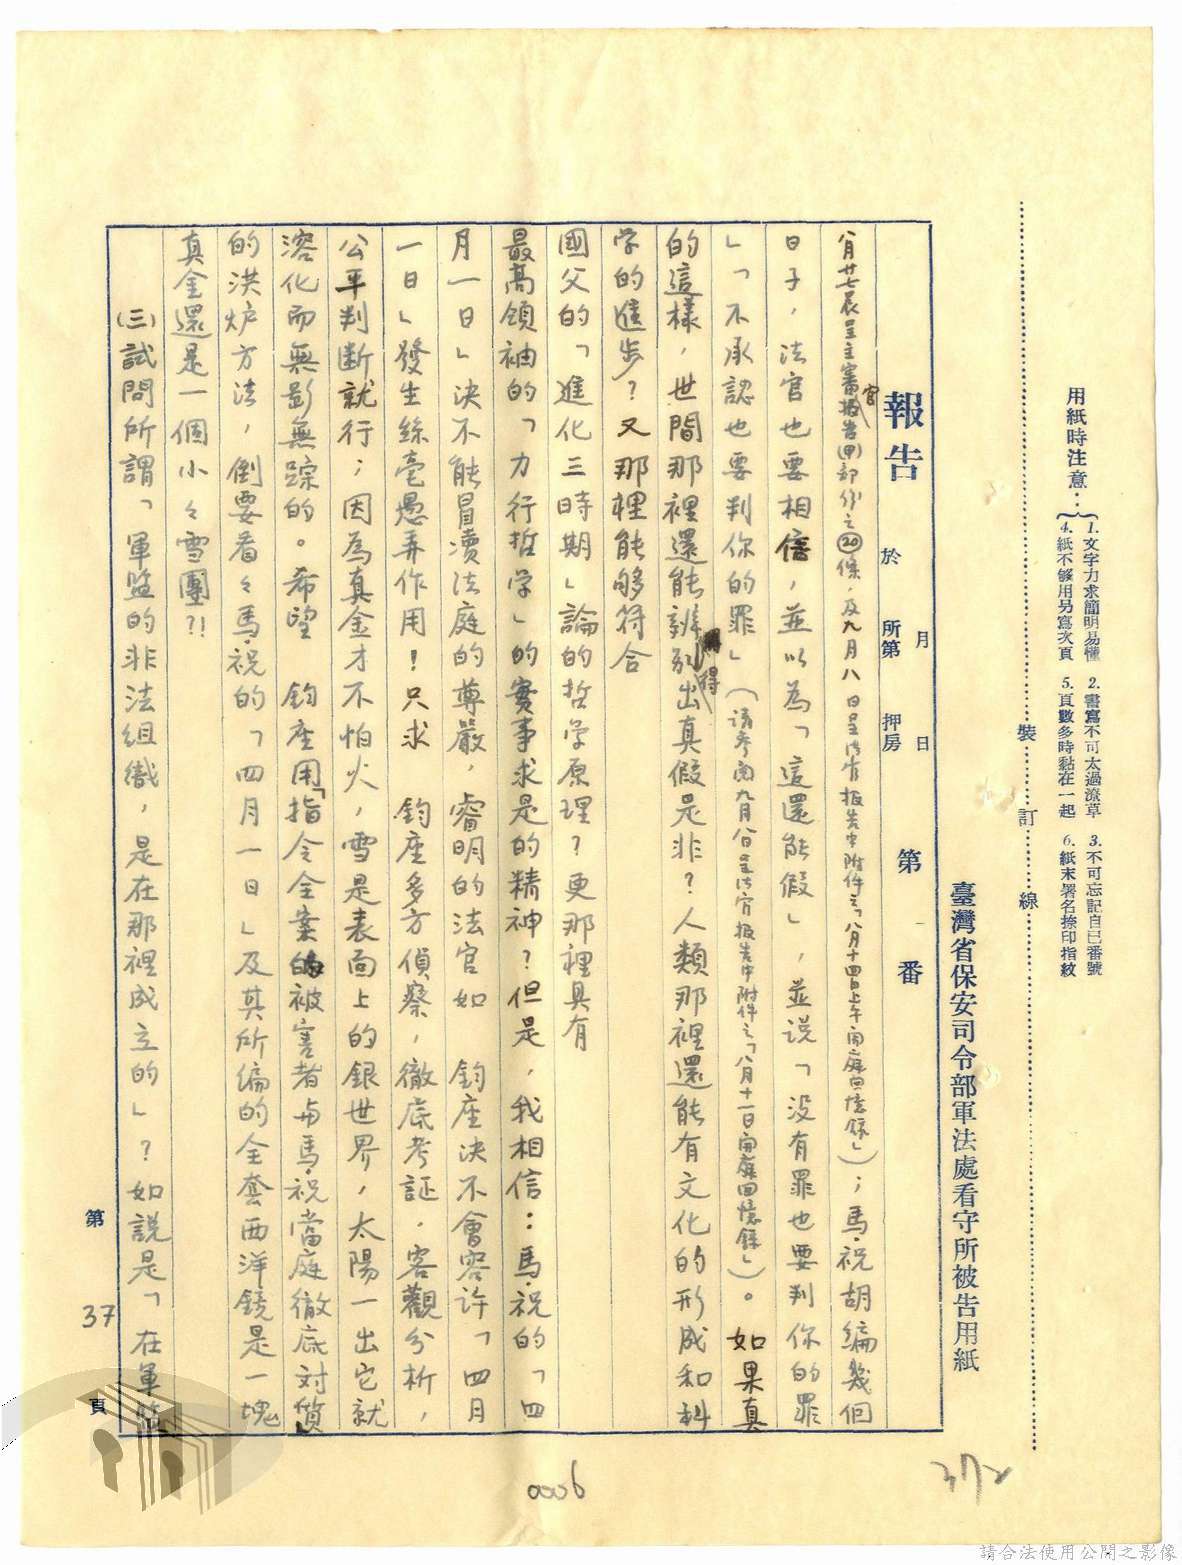 用紙時注意：
1. 文字力求簡明易懂 2. 書寫不可太過潦草 3. 不可忘記自己番號
4. 紙不够用另寫次頁 5. 頁數多時黏在一起 6. 紙末署名捺印指紋
裝 訂 線
臺灣省保安司令部軍法處看守所被告用紙
報告 於 月 日 所第 押房 第 番
八月廿七晨呈主審官報告(甲)部份之⑳條，及九月八日呈法官報告中附件之「八月十四日上午開庭回憶錄」）；馬.祝胡編幾個
日子，法官也要相信，並以為「這還能假」，並説「没有罪也要判你的罪
」「不承認也要判你的罪」（請參閱九月八日呈法官報告中附件之「八月十一日開庭回憶錄」）。如果真
的這樣，世間那裡還能辨別得出真假是非？人類那裡還能有文化的形成和科
学的進步？又那裡能够符合
國父的「進化三時期」論的哲学原理？更那裡具有
最高領袖的「力行哲学」的實事求是的精神？但是，我相信：馬.祝的「四
月一日」決不能冒瀆法庭的尊嚴，睿明的法官如 鈞座決不會容許「四月
一日」發生絲毫愚弄作用！只求 鈞座多方偵察，徹底考証，客觀分析，
公平判断就行；因為真金才不怕火，雪是表面上的銀世界，太陽一出它就
溶化而無影無踪的。希望 鈞座用「指令全案的被害者与馬.祝當庭徹底対質」
的洪炉方法，倒要看々馬.祝的「四月一日」及其所编的全套西洋鏡是一塊
真金還是一個小々雪團？！
(三)試問所謂「軍監的非法組織，是在那裡成立的」？如説是「在軍監
第 37 頁
0006
372
請合法使用公開之影像